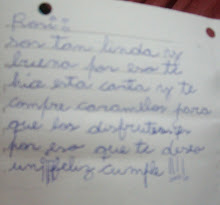 Rosi:
son tan linda y
buena por eso te
hia esta carta y te
compre caramelos para
que los disfrutes y
por eso que te deseo
un feliz cumple !!!